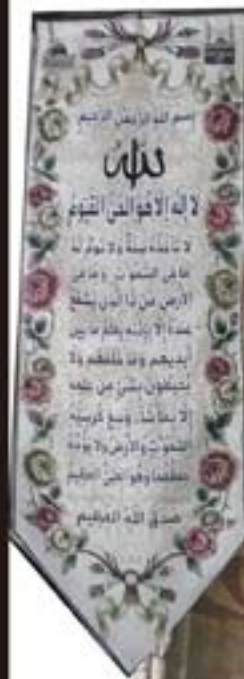 بسم الله الرحمن الرحيم
الله
لا إله الا هو الحي القيوم
لا تأخذه سنة ولا نوم له
ما في السموت وما في
الأرض من ذا الذي يشفع
عنده إلا بإذنه يعلم ما بين
أيديهم وما خلفهم ولا
يحيطون بشئ من علمه
إلا بما شاء وسع كرسيه
السموت والأرض ولا يؤده
حفظهما وهو العلي العظيم
صدق الله العظيم